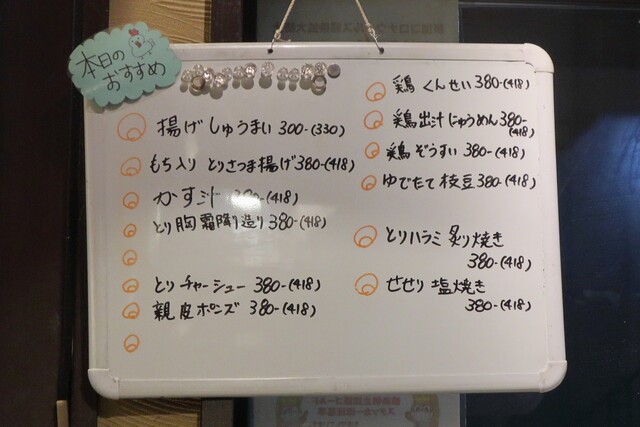 本日の
おすすめ
揚げしゅうまい 300-(330)
もち入り とりさつま揚げ 380-(418)
かす汁 380-(418)
とり胸 霜降り造り 380-(418)
とりチャーシュー 380-(418)
親皮ポンズ 380-(418)
鶏 くんせい 380-(418)
鶏出汁にゅうめん 380-
(418)
鶏ぞうすい 380-(418)
ゆでたて枝豆 380-(418)
とりハラミ 炙り焼き
380-(418)
せせり 塩焼き
380-(418)